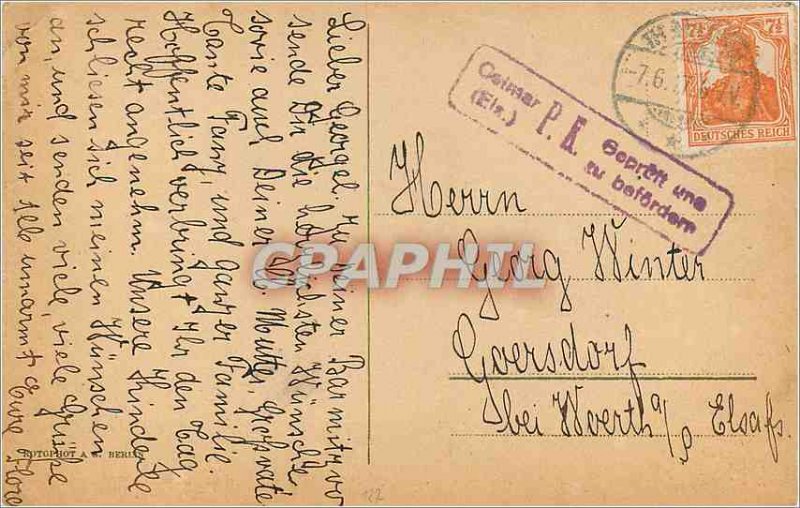 Lieber Georgel. Zu deiner Barmitzvo
sende Dir die herzlichsten Wünsche
sowie auch Deiner lb. Mutter, Großvater
Tante Fanz, und ganzer Familie.
Hoffentlich verbringt Ihr den Tag
recht angenehm. Unsere Kinderle
schliesen sich meinen Wünschen
an, und senden viele viele Grüße
von mir seit Alb umarmt Eure Flore
ROTOPHOT A.G. BERLIN
7½ 7½
DEUTSCHES REICH
7.6.17
Colmar
(Els.)
P. K.
Geprüft und
zu befördern
Herrn
Georg Winter
Goersdorf
bei Woerth a/S Elsaß.
GRAPHIL
122